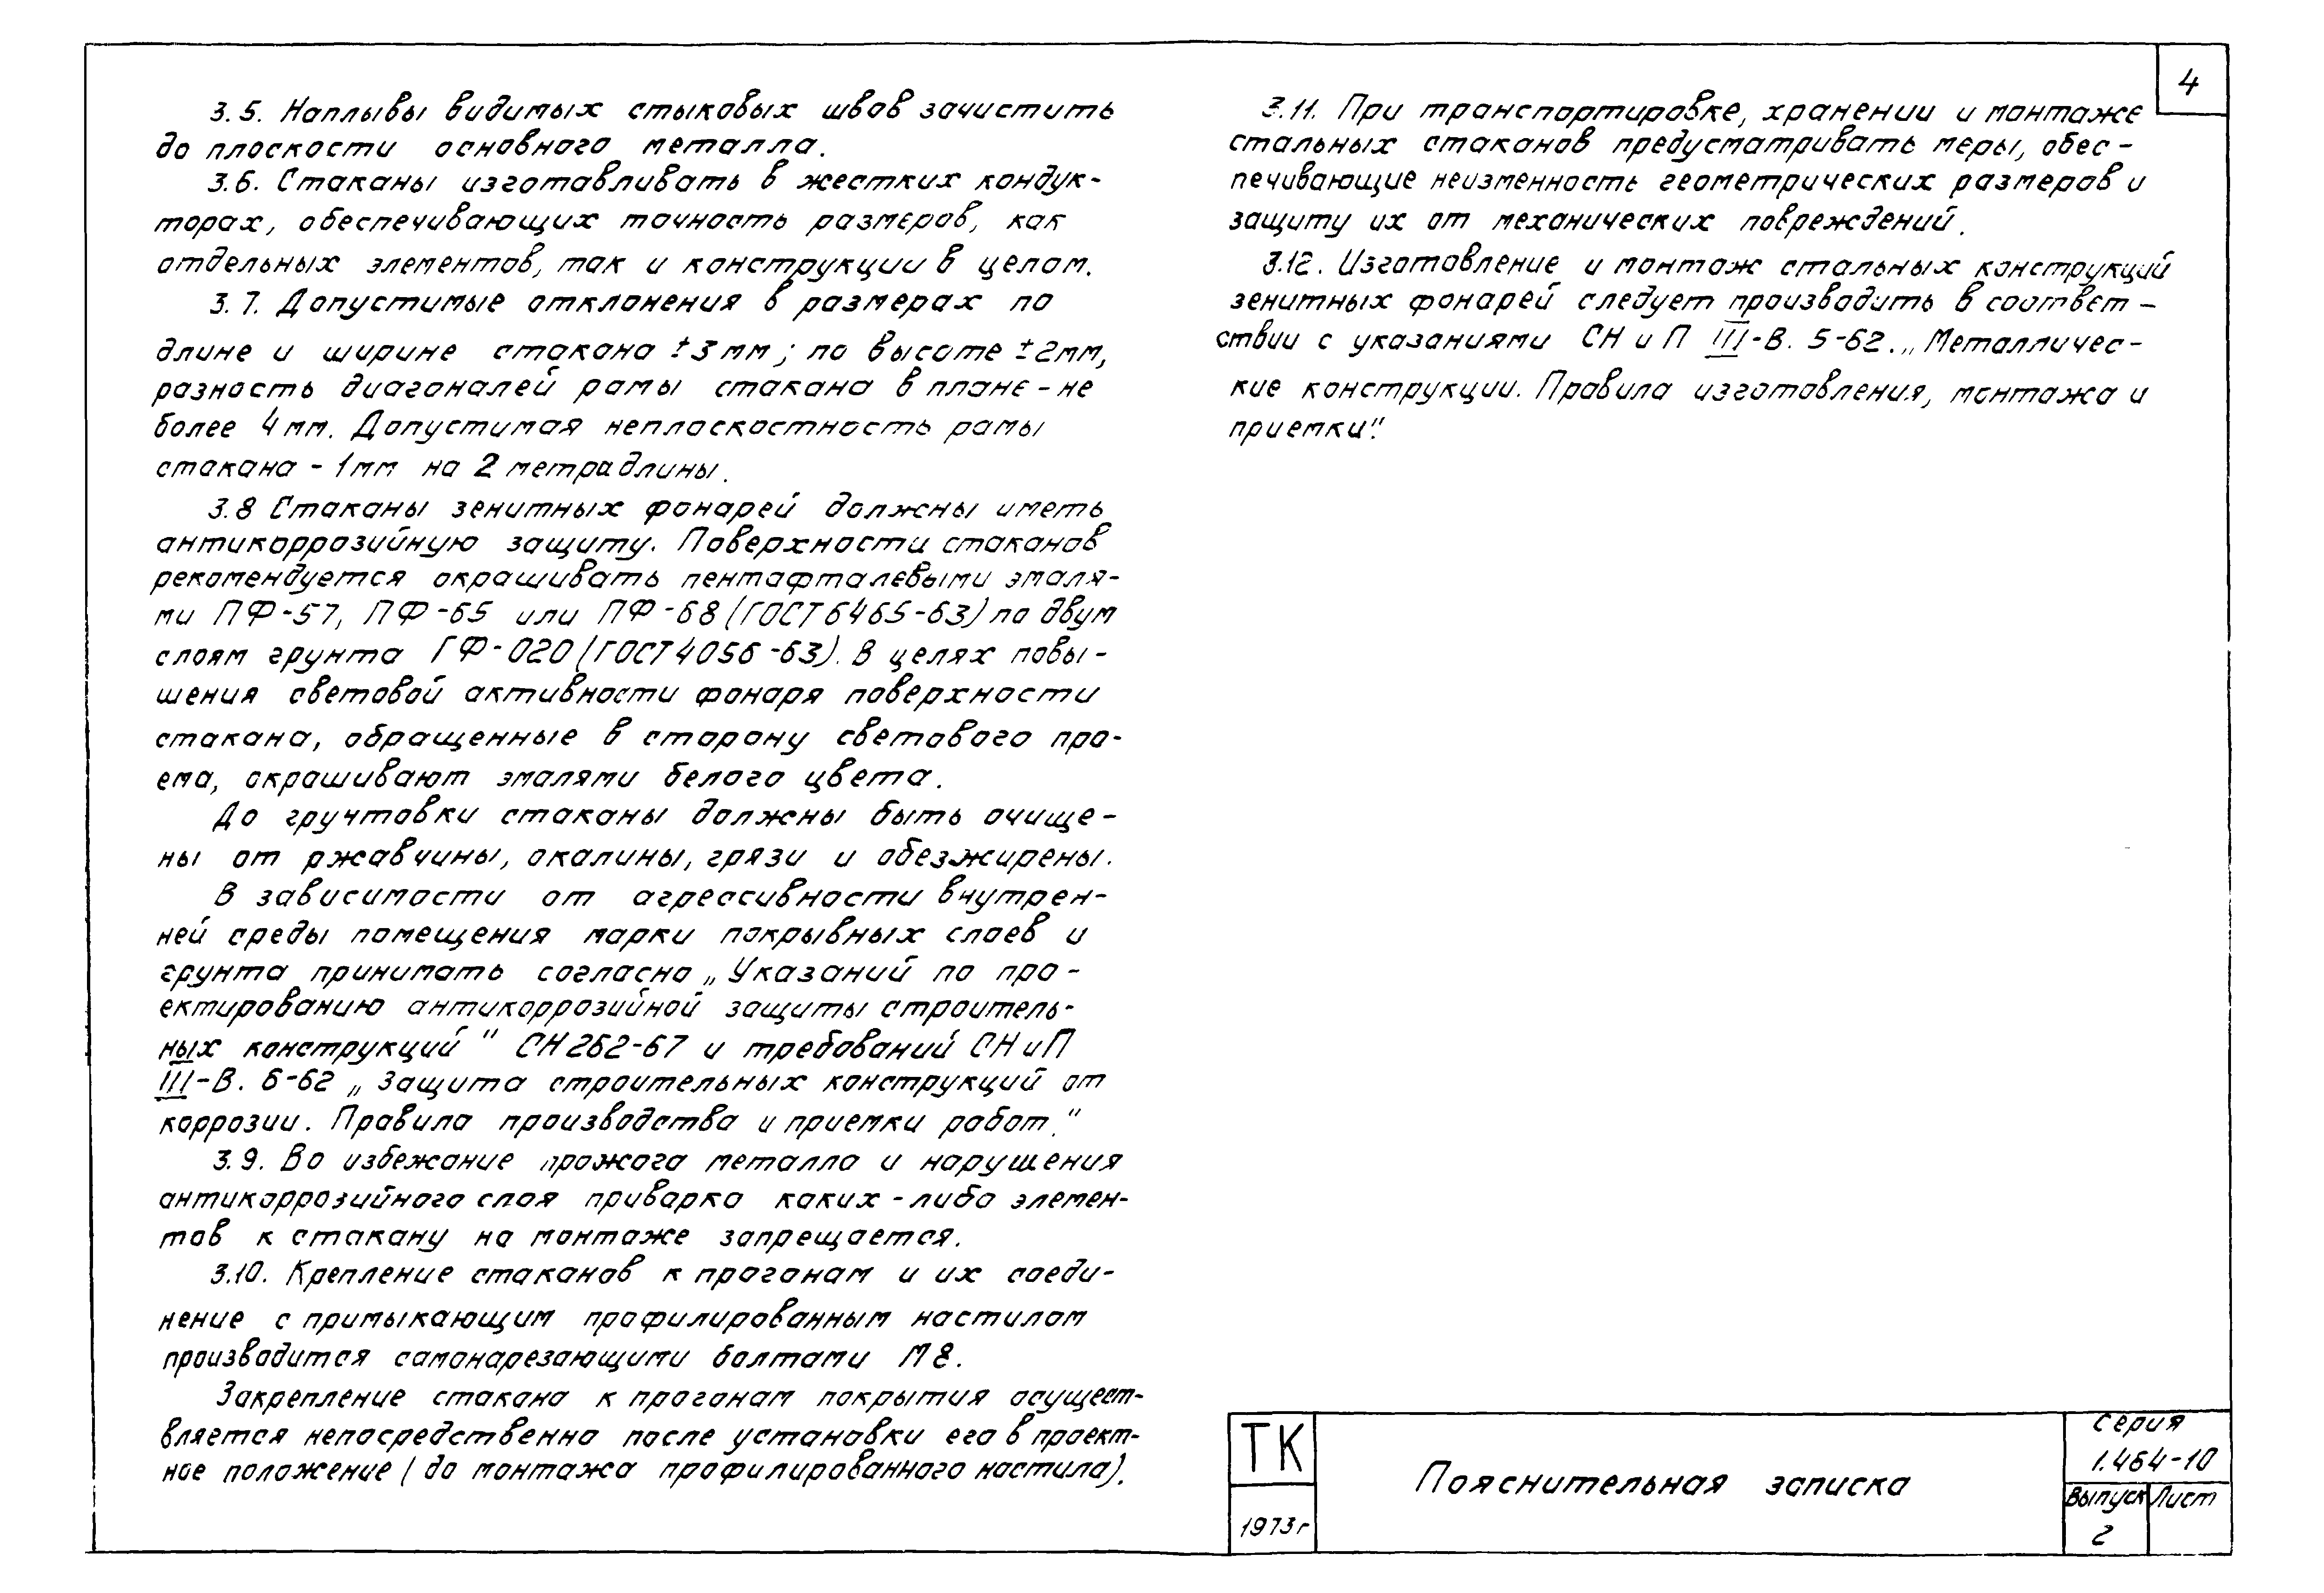 4
3.5. Наплывы видимых стыковых швов зачистить
до плоскости основного металла.
3.6. Стаканы изготавливать в жестких кондук-
торах, обеспечивающих точность размеров, как
отдельных элементов, так и конструкции в целом.
3.7. Допустимые отклонения в размерах по
длине и ширине стакана ±3мм; по высоте ±2мм,
разность диагоналей рамы стакана в плане - не
более 4мм. Допустимая неплоскостность рамы
стакана - 1мм на 2 метра длины.
3.8 Стаканы зенитных фонарей должны иметь
антикоррозийную защиту. Поверхности стаканов
рекомендуется окрашивать пентафталевыми эмаля-
ми ПФ-57, ПФ-65 или ПФ-68 (ГОСТ 6465-63) по двум
слоям грунта ГФ-020 (ГОСТ 4056-63). В целях повы-
шения световой активности фонаря поверхности
стакана, обращенные в сторону светового про-
ема, окрашивают эмалями белого цвета.
До грунтовки стаканы должны быть очище-
ны от ржавчины, окалины, грязи и обезжирены.
В зависимости от агрессивности внутрен-
ней среды помещения марки покрывных слоев и
грунта принимать согласно „Указаний по про-
ектированию антикоррозийной защиты строитель-
ных конструкций" СН 262-67 и требований СНиП
III-В. 6-62 „Защита строительных конструкций от
коррозии. Правила производства и приемки работ."
3.9. Во избежание прожога металла и нарушения
антикоррозийного слоя приварка каких-либо элемен-
тов к стакану на монтаже запрещается.
3.10. Крепление стаканов к прогонам и их соеди-
нение с примыкающим профилированным настилом
производится самонарезающими болтами М8.
Закрепление стакана к прогонам покрытия осущест-
вляется непосредственно после установки его в проект-
ное положение (до монтажа профилированного настила).
3.11. При транспортировке, хранении и монтаже
стальных стаканов предусматривать меры, обес-
печивающие неизменность геометрических размеров и
защиту их от механических повреждений.
3.12. Изготовление и монтаж стальных конструкций
зенитных фонарей следует производить в соответ-
ствии с указаниями СНиП III-В. 5-62. „Металличес-
кие конструкции. Правила изготовления, монтажа и
приемки".
ТК
1973г
Пояснительная записка
Серия
1.464-10
Выпуск Лист
2